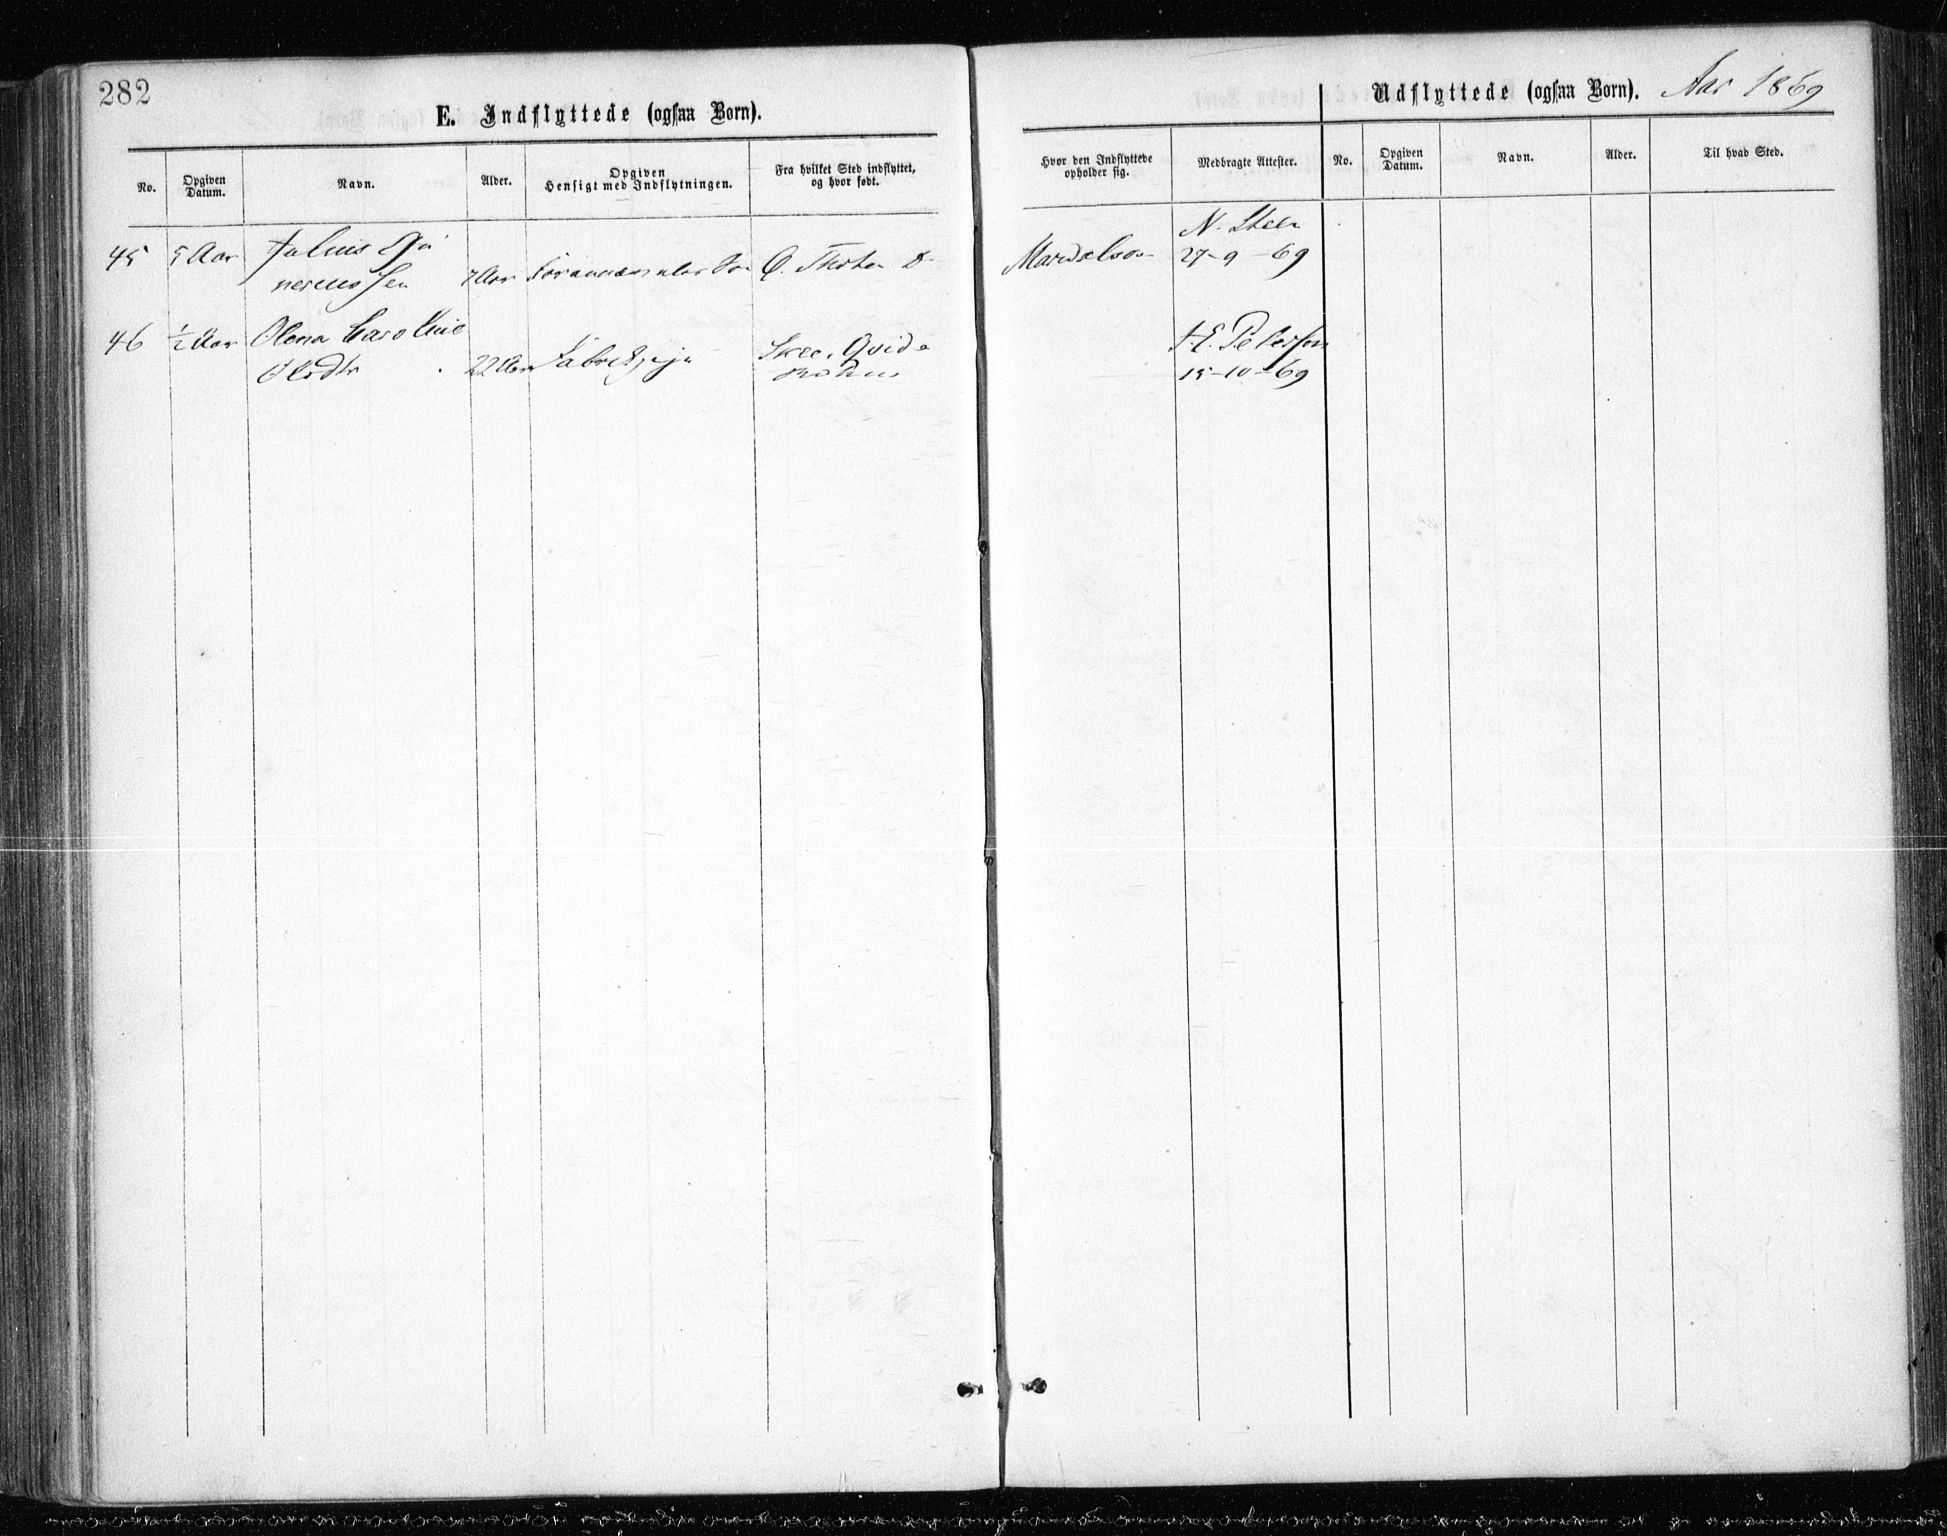 282
E. Indflyttede (ogsaa Børn).
No.
Opgiven Datum.
Navn.
Alder.
Opgiven Hensigt med Indflytningen.
Fra hvilket Sted indflyttet, og hvor født.
45
5 Aar
Julius
nerius sen
7 Aar
Ø. Thoten
46
½ Aar
Olena Caroline
Olsdtr
22 Aar
Fabrikspige
Skee, Qvide
Udflyttede (ogsaa Børn). Aar 1869
Hvor den Indflyttede opholder sig.
Medbragte Attester.
No.
Opgiven Datum.
Navn.
Alder.
Til hvad Sted.
N. Steen
27-9-69
H. E. Peterson
15-10-69